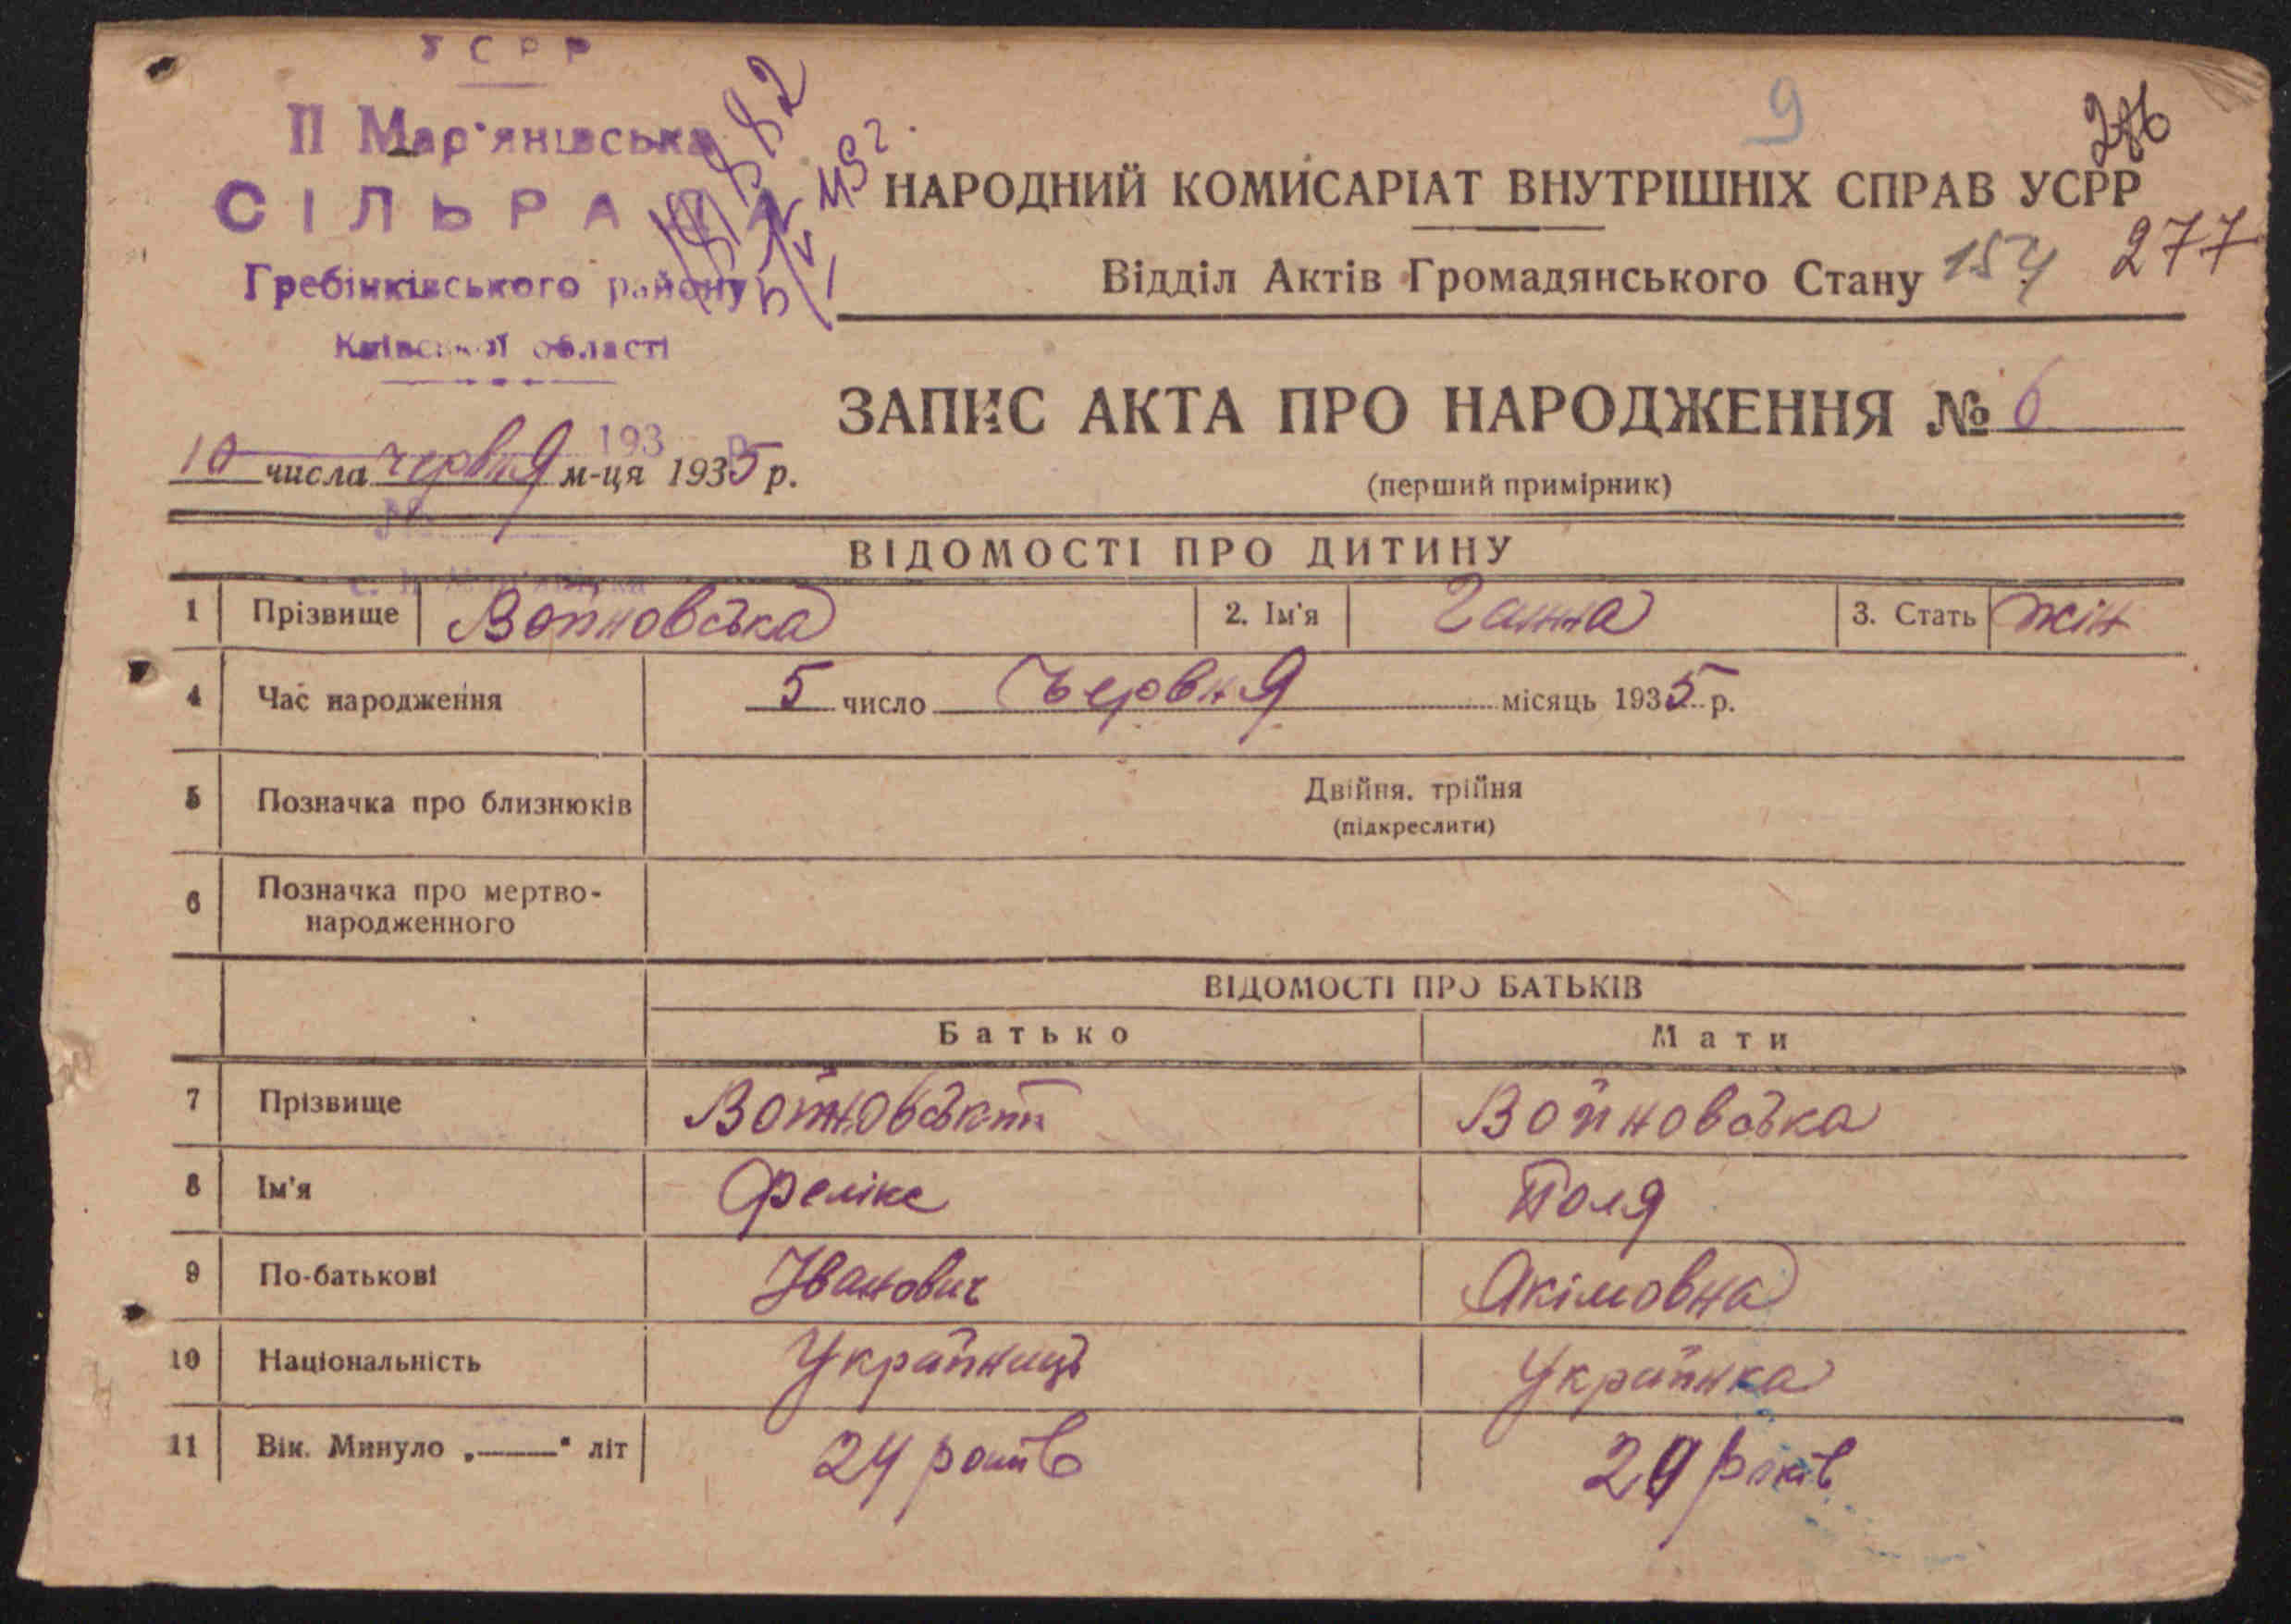 УСРР
ІІ Мар'янівська
СІЛЬРАДА
Гребінківського району
Київської області
9
276
НАРОДНИЙ КОМИСАРІАТ ВНУТРІШНІХ СПРАВ УСРР
Відділ Актів Громадянського Стану 154 277
ЗАПИС АКТА ПРО НАРОДЖЕННЯ № 6
193 р.
10 числа червня м-ця 1935 р.
(перший примірник)
№
ВІДОМОСТІ ПРО ДИТИНУ
с. ІІ Мар'янівка
1 Прізвище Войновська 2. Ім'я Ганна 3. Стать жін
4 Час народження 5 число Червня місяць 1935 р.
5 Позначка про близнюків Двійня, трійня
(підкреслити)
6 Позначка про мертво-
народженного
ВІДОМОСТІ ПРО БАТЬКІВ
Батько Мати
7 Прізвище Войновський Войновська
8 Ім'я Фелікс Поля
9 По-батькові Іванович Якімовна
10 Національність Українець Українка
11 Вік. Минуло „——“ літ 24 років 29 років